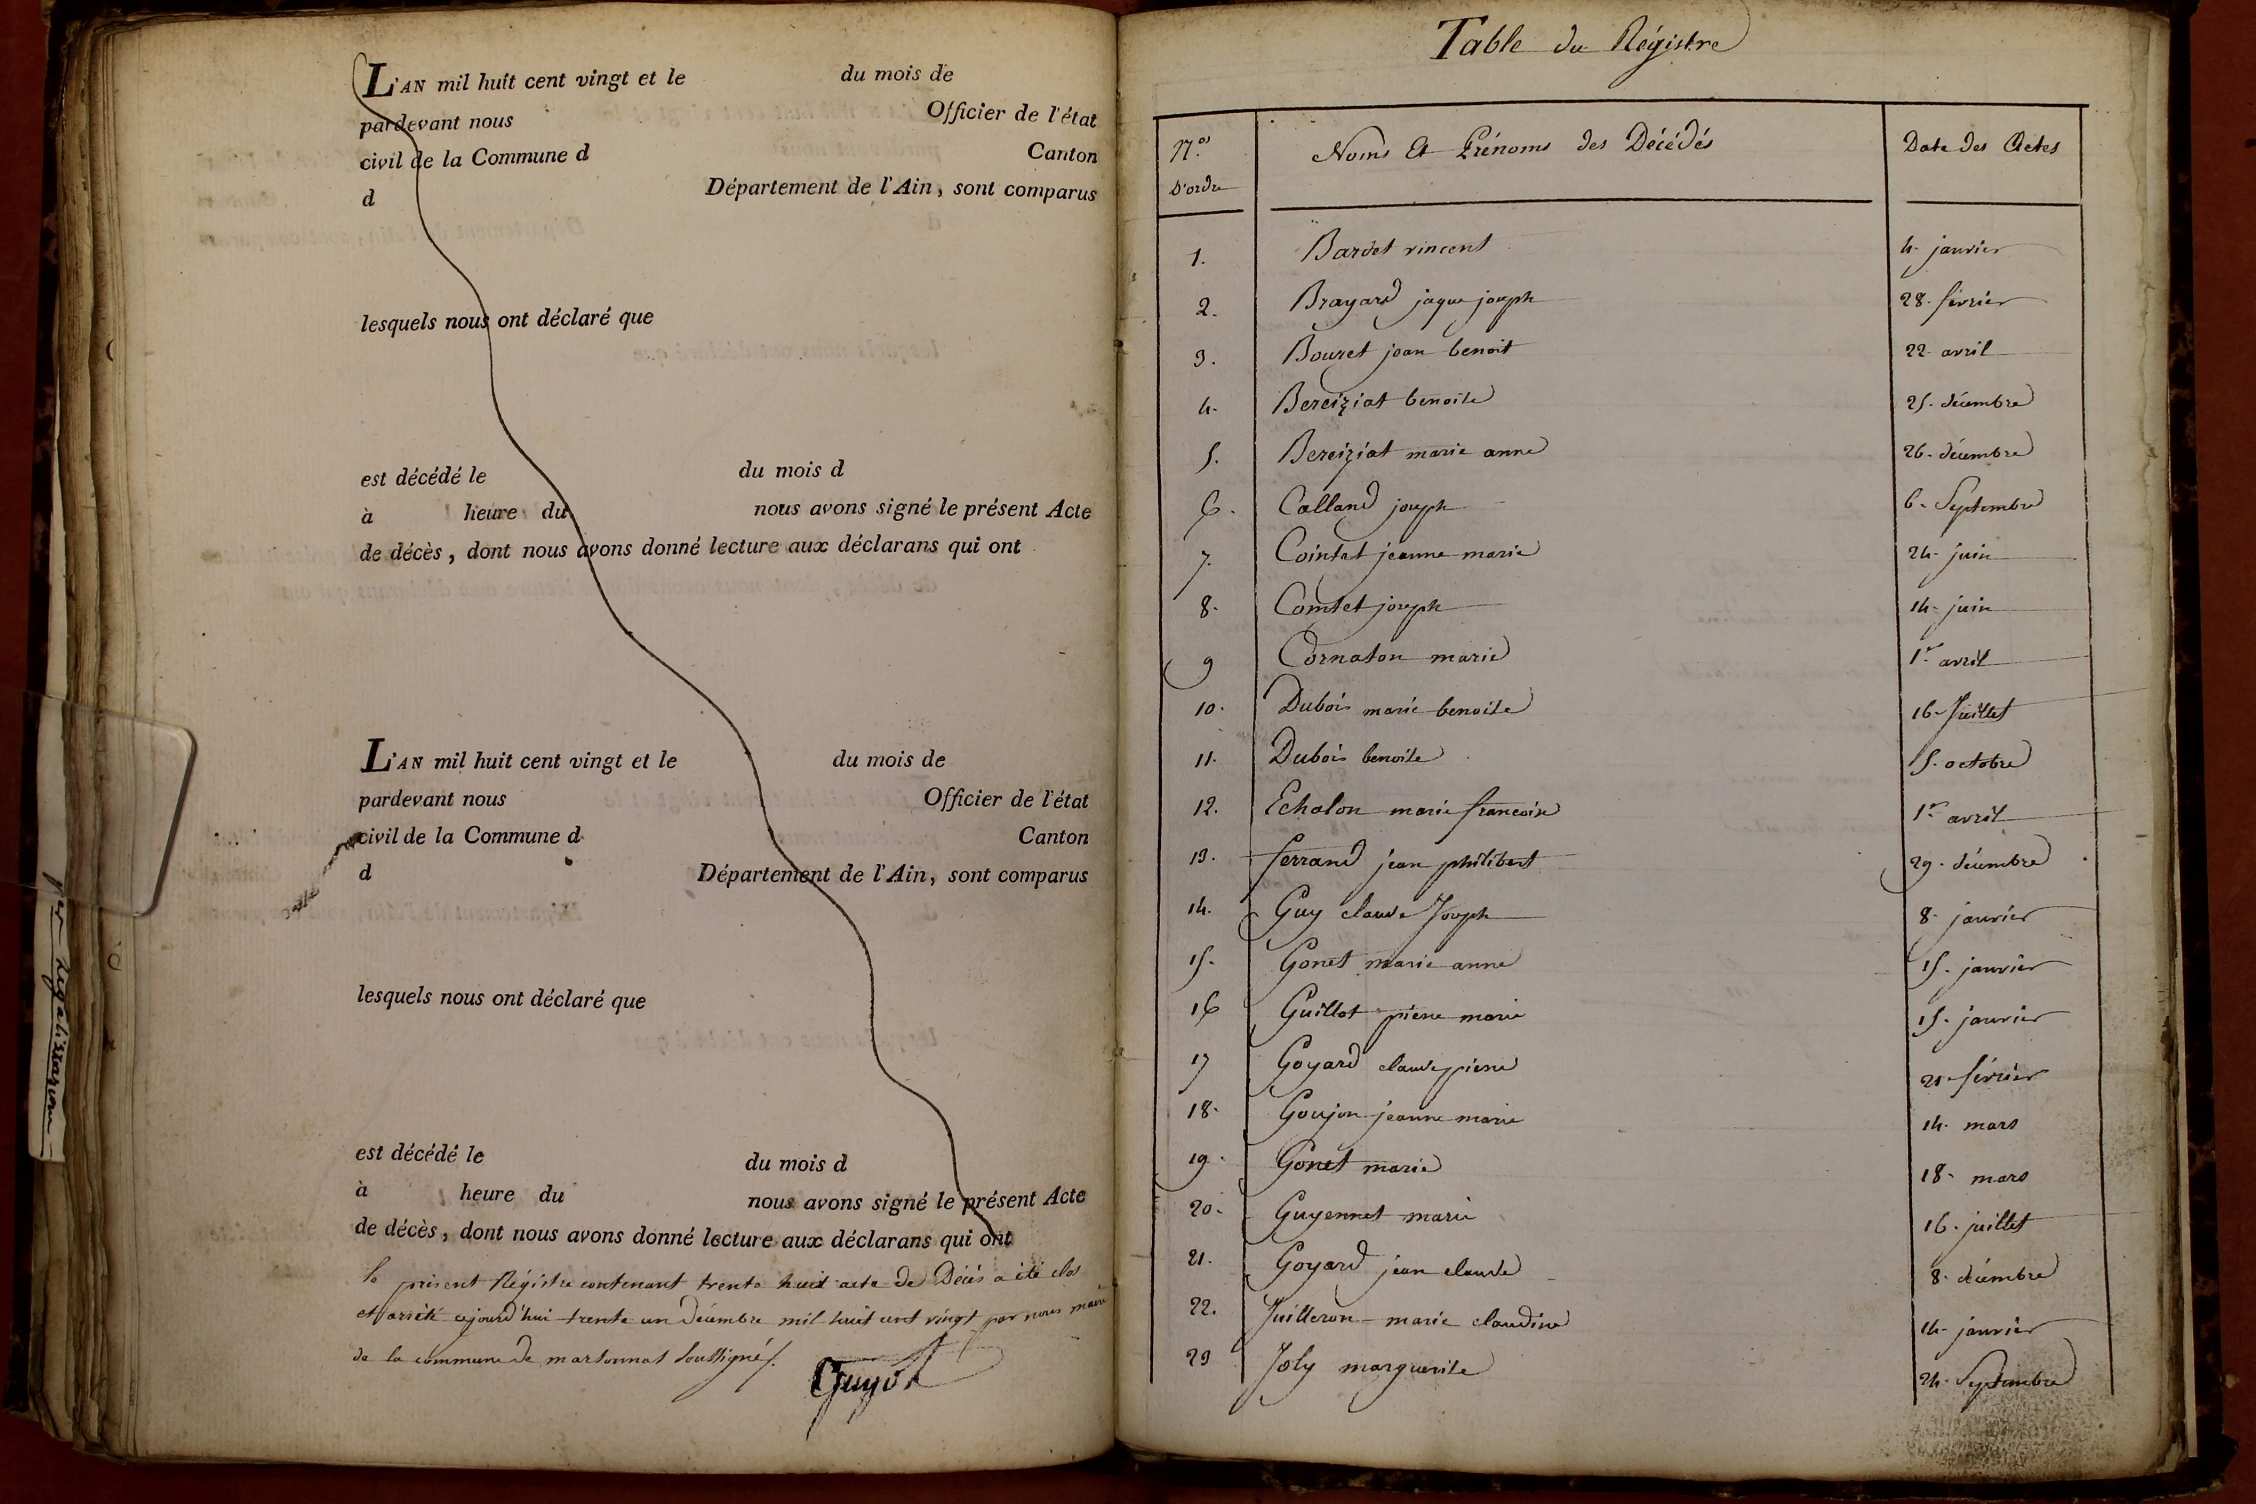 L'AN mil huit cent vingt et le du mois de
pardevant nous Officier de l'état
civil de la Commune d Canton
d Département de l'Ain, sont comparus
lesquels nous ont déclaré que
est décédé le du mois d
à heure du nous avons signé le présent Acte
de décès, dont nous avons donné lecture aux déclarans qui ont
L'AN mil huit cent vingt et le du mois de
pardevant nous Officier de l'état
civil de la Commune d Canton
d Département de l'Ain, sont comparus
lesquels nous ont déclaré que
est décédé le du mois d
à heure du nous avons signé le présent Acte
de décès, dont nous avons donné lecture aux déclarans qui ont
le présent Régistre contenant trente huit acte de Décès a été clos
et arrêté cejourd'hui trente un décembre mil huit cent vingt par nous maire
de la commune de marsonnas soussigné.
Guyot
Table du Régistre
N.os d'ordre Noms Et Prénoms des Décédés Date des Actes
1. Bardet vincent 4. janvier
2. Brayard jaque joseph 28. février
3. Bouret jean benoit 22. avril
4. Bereiziat benoite 25. décembre
5. Bereiziat marie anne 26. décembre
6. Calland joseph 6. Septembre
7. Cointat jeanne marie 24. juin
8. Comtet joseph 14. juin
9 Cornaton marie 1.er avril
10. Dubois marie benoite 16. Juillet
11. Dubois benoite 5. octobre
12. Echalon marie francoise 1.er avril
13. ferrand jean philibert 29. décembre
14. Guy claude Joseph 8. janvier
15. Gonet marie anne 15. janvier
16 Guillot pierre marie 15. janvier
17 Goyard claude pierre 21. février
18. Goujon jeanne marie 14. mars
19. Gonet marie 18. mars
20. Guyennet marie 16. juillet
21. Goyard jean claude 8. décembre
22. Juilleron marie claudine 14. janvier
23 Joly marguerite 24. Septembre